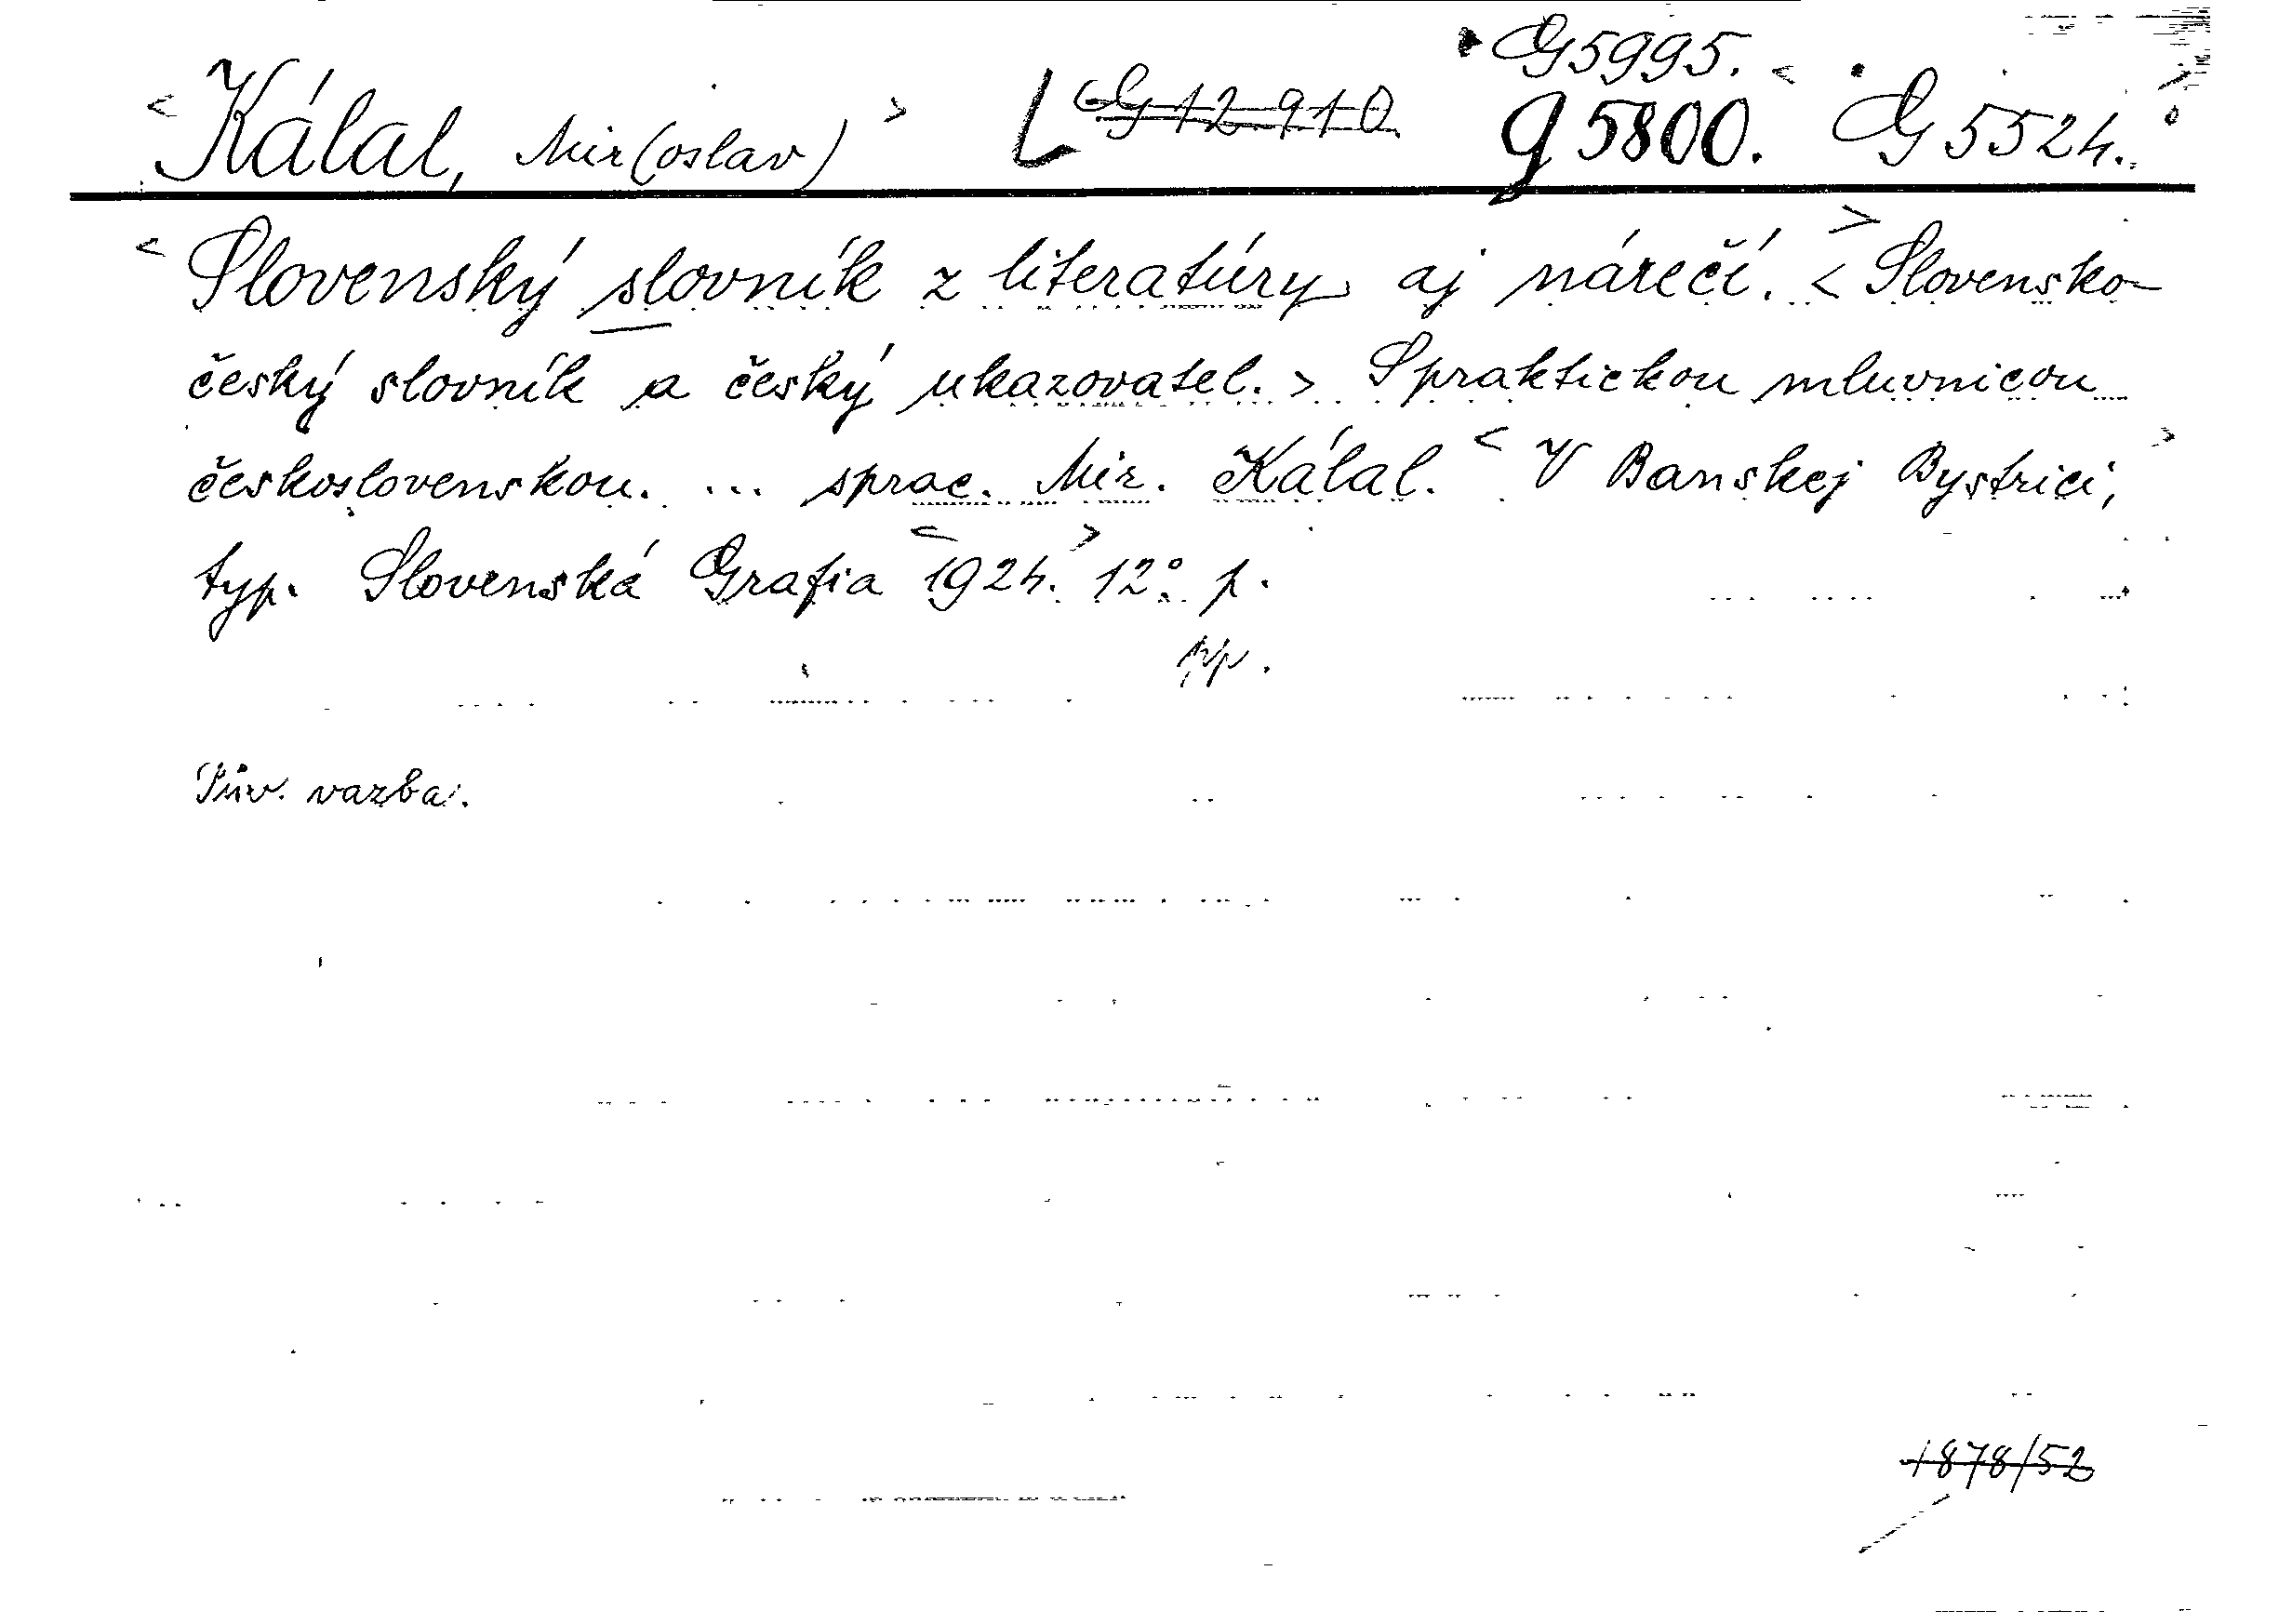 G 5995.
<Kálal, Mir(oslav)> G 12.910 g 5800. <G 5524.>
<Slovenský slovník z literatúry aj nárečí.> <Slovensko-
český slovník a český ukazovatel.> S praktickou mluvnicou
československou. ... sprac. Mir. Kálal. <V Banskej Bystrici,>
typ. Slovenská Grafia <1924.> 12° p.
Pův. vazba.
1878/52